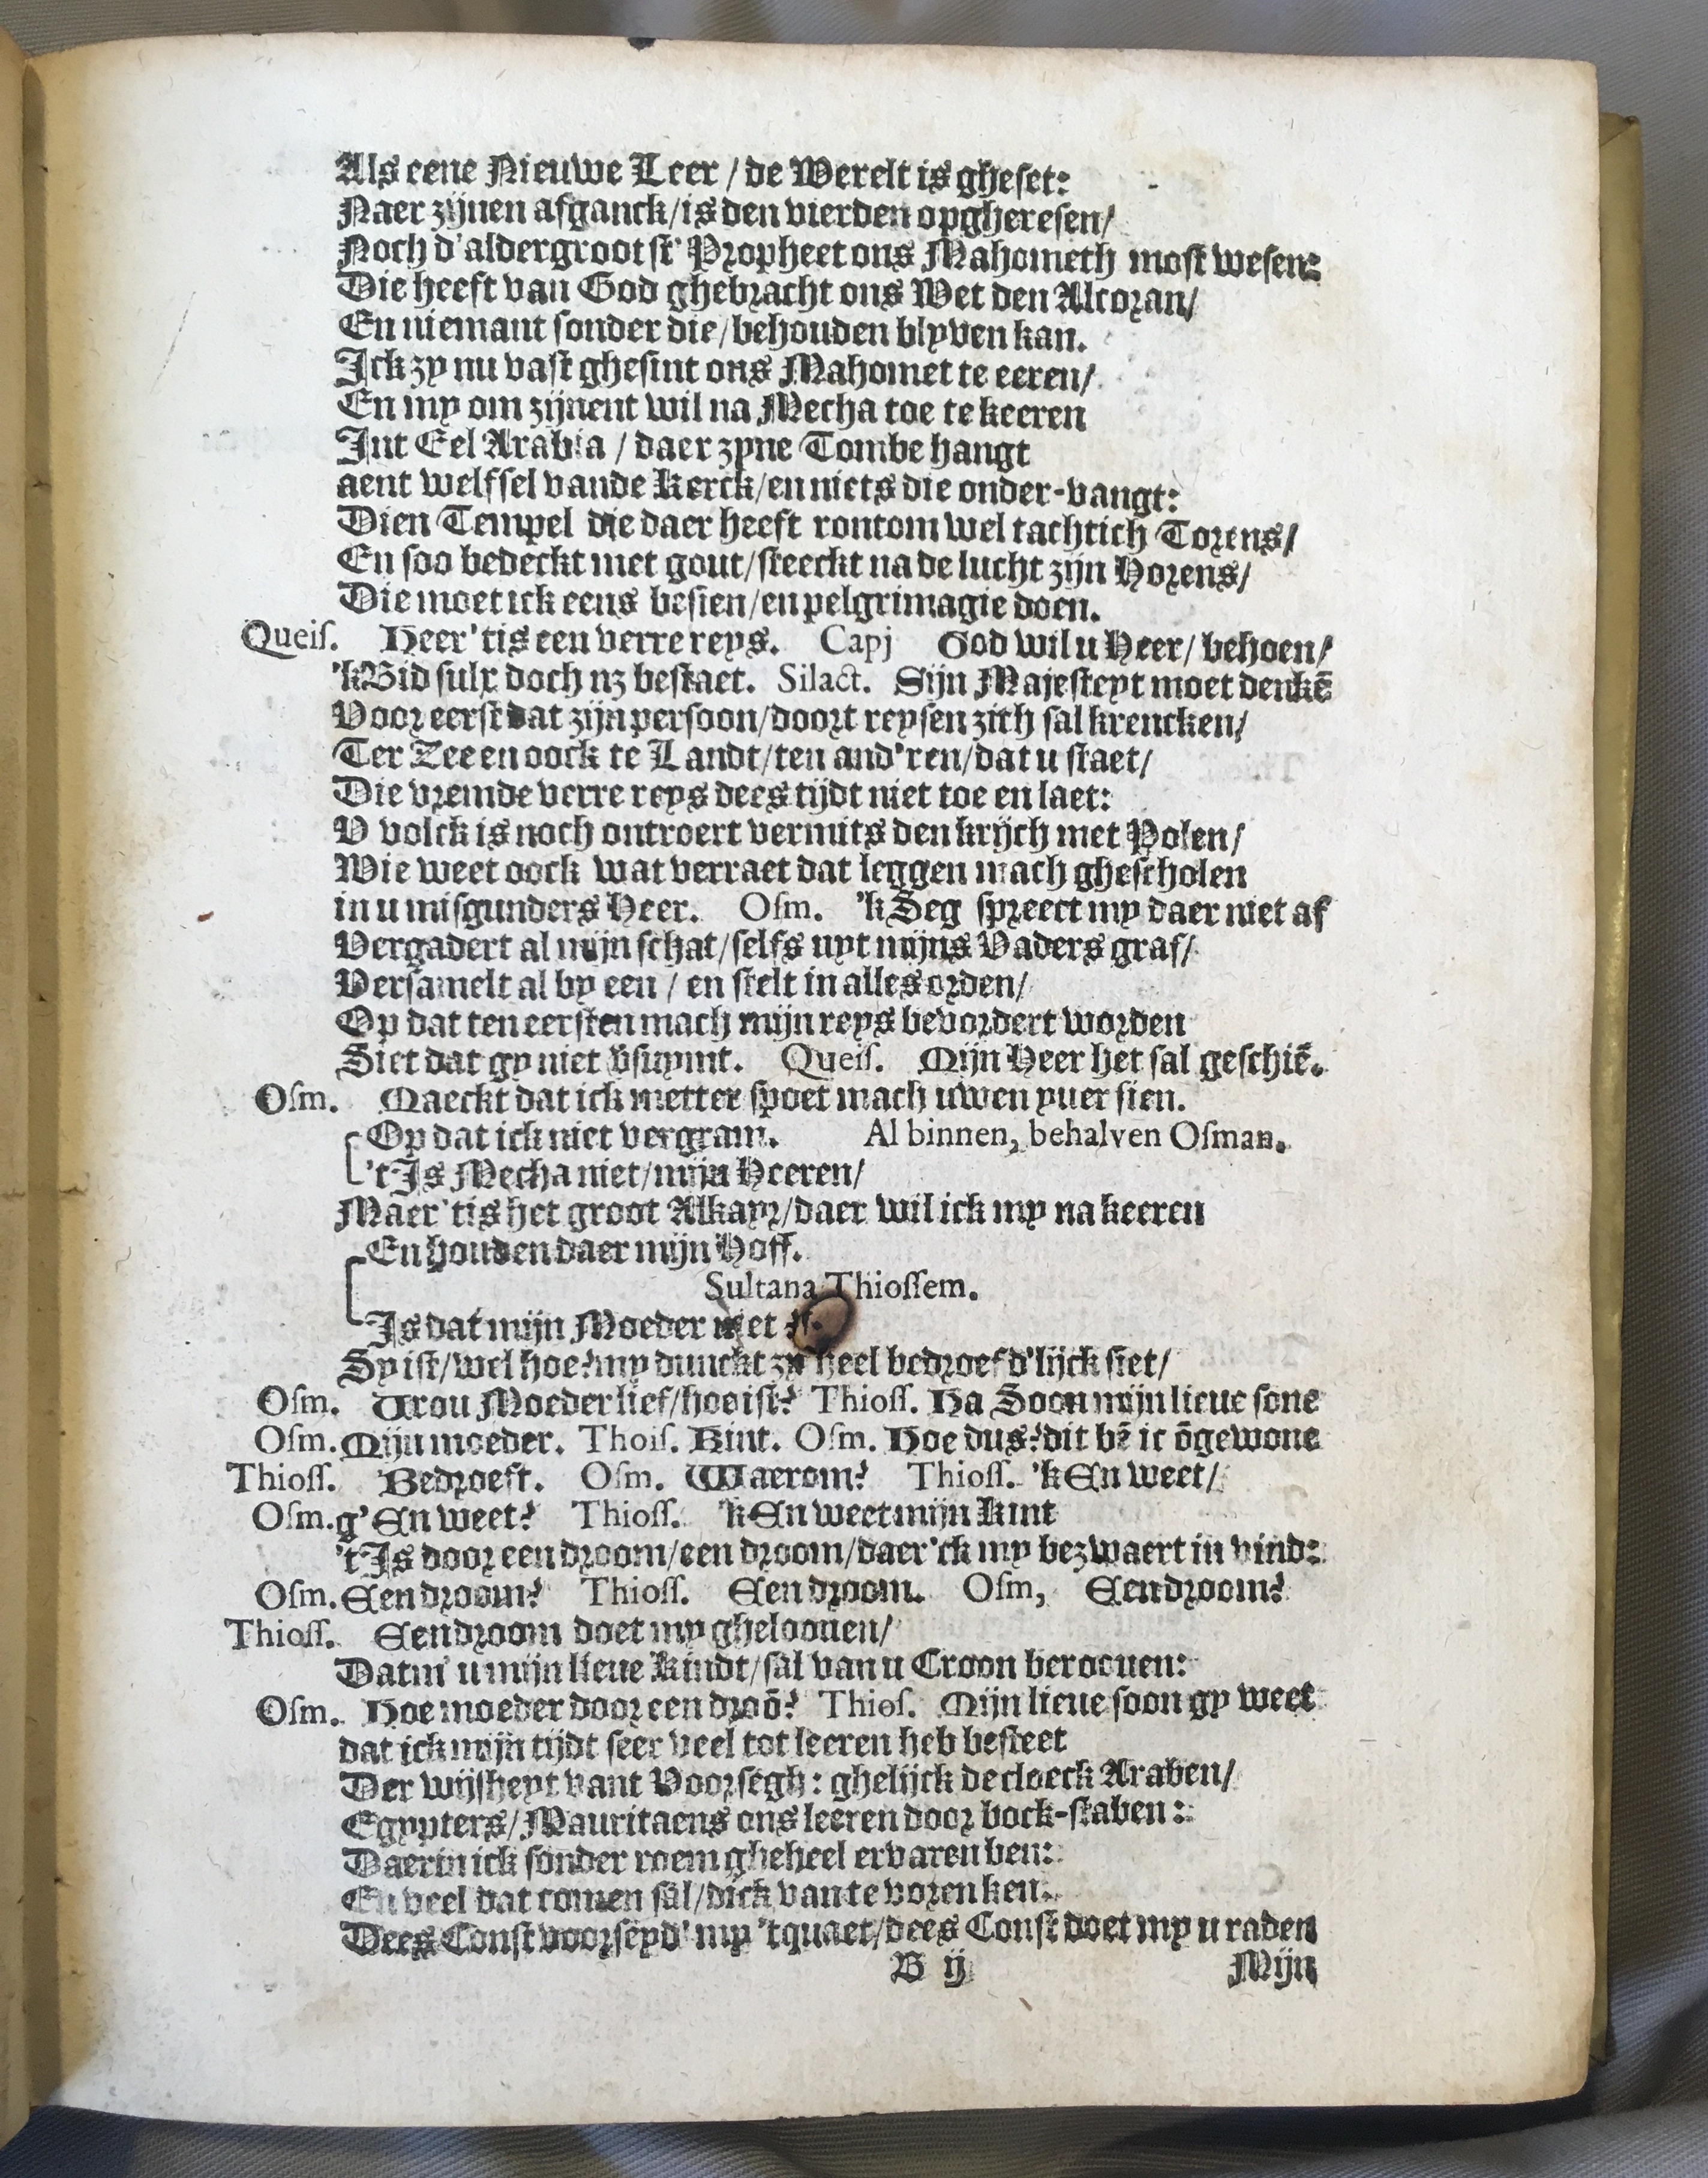 Als eene Nieuwe Leer / de Werelt is gheset:
Naer zijnen afganck/is den vierden opgheresen/
Noch d'aldergrootst' Propheet ons Mahometh most wesen:
Die heeft van God ghebracht ons Wet den Alcoran/
En niemant sonder die/behouden blyven kan.
Ick zy nu vast ghesint ons Mahomet te eeren/
En my om zijnent wil na Mecha toe te keeren
Int Eel Arabia / daer zyne Tombe hangt
aent welfsel vande Kerck/en niets die onder-vangt:
Dien Tempel die daer heeft rontom wel tachtich Torens/
En soo bedeckt met gout/steeckt na de lucht zijn Horens/
Die moet ick eens besien/en pelgrimagie doen.
Queis. Heer 'tis een verre reys. Capj God wil u Heer/ behoen/
'k Bid sulx doch nz bestaet. Silact. Sijn Majesteyt moet denkē
Voor eerst dat zijn persoon/doort reysen zich sal krencken/
Ter Zee en oock te Landt/ten and'ren/dat u staet/
Die vremde verre reys dees tijdt niet toe en laet:
V volck is noch ontroert vermits den krijch met Polen/
Wie weet oock wat verraet dat leggen mach ghescholen
in u misgunders Heer. Osm. 'k Seg spreect my daer niet af
Vergadert al mijn schat/selfs uyt mijns Vaders graf/
Versamelt al by een / en stelt in alles orden/
Op dat ten eersten mach mijn reys bevordert worden
Siet dat gy niet v̄suymt. Queis. Mijn Heer het sal geschiē.
Osm. Maeckt dat ick metter spoet mach uwen yver sien.
Op dat ick niet vergram. Al binnen, behalven Osman.
't Is Mecha niet/mijn Heeren/
Maer 'tis het groot Alkayr/daer wil ick my na keeren
En houden daer mijn Hoff.
Sultana Thiossem.
Is dat mijn Moeder niet
Sy ist/wel hoe? my dunckt zy heel bedroefd'lijck siet/
Osm. Vrou Moeder lief/hoe ist? Thioss. Ha Soon mijn lieve sone
Osm. Mijn moeder. Thois. Kint. Osm. Hoe dus? dit bē ic ōgewone
Thioss. Bedroeft. Osm. Waerom? Thioss. 'k En weet/
Osm. g' En weet? Thioss. 'k En weet mijn Kint
't Is door een droom/een droom/daer 'ck my bezwaert in vind:
Osm. Een droom? Thioss. Een droom. Osm, Een droom?
Thioss. Een droom doet my ghelooven/
Datm' u mijn lieve Kindt/sal van u Croon berooven:
Osm. Hoe moeder door een droō? Thios. Mijn lieve soon gy weet
dat ick mijn tijdt seer veel tot leeren heb besteet
Der wijsheyt vant Voorsegh: ghelijck de cloeck Araben/
Egypters/Mauritaens ons leeren door bock-staben:
Daerin ick sonder roem gheheel ervaren ben:
En veel dat comen sal/dick van te voren ken.
Dees Const voorseyd' my 'tquaet/dees Const doet my u raden
B ij Mijn